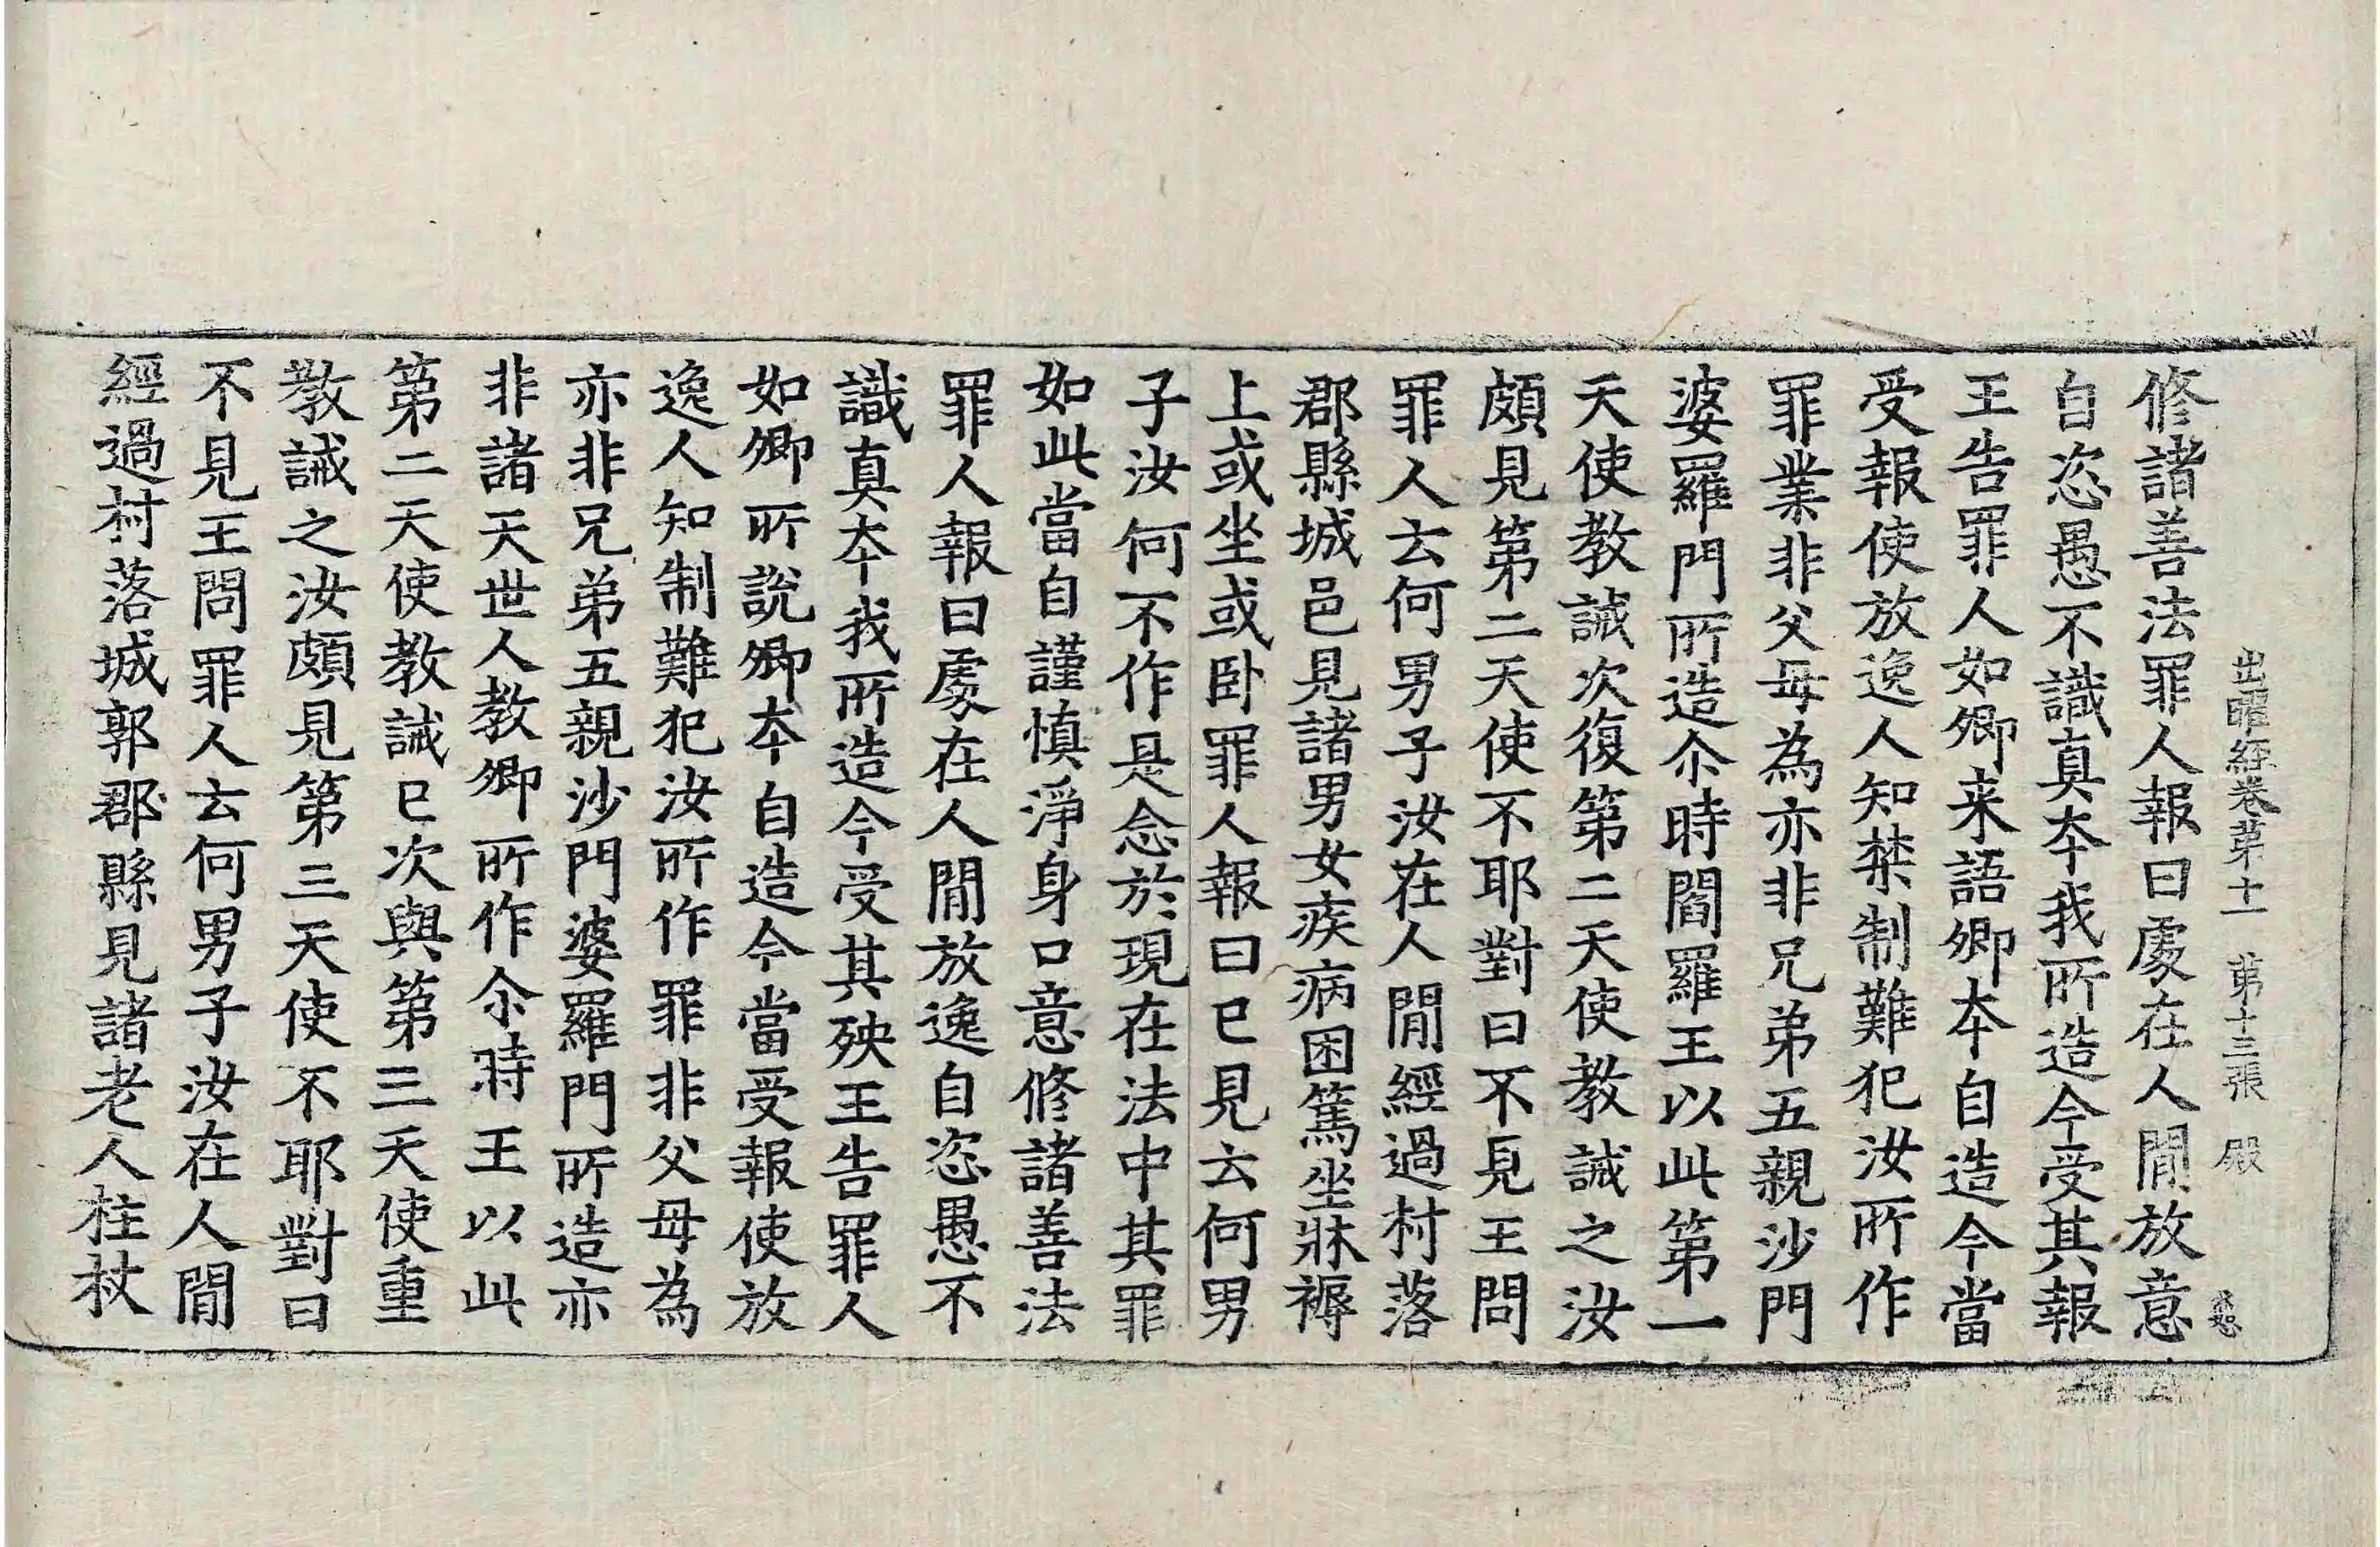 出曜經卷第十一 第十三張 殿
修諸善法罪人報曰處在人閒放意
自恣愚不識真本我所造今受其報
王告罪人如卿来語卿本自造今當
受報使放逸人知禁制難犯汝所作
罪業非父母為亦非兄弟五親沙門
婆羅門所造尒時閻羅王以此第一
天使教誡次復第二天使教誡之汝
頗見第二天使不耶對曰不見王問
罪人云何男子汝在人閒經過村落
郡縣城邑見諸男女疾病困篤坐牀褥
上或坐或卧罪人報曰已見云何男
子汝何不作是念於現在法中其罪
如此當自謹慎淨身口意修諸善法
罪人報曰處在人閒放逸自恣愚不
識真本我所造今受其殃王告罪人
如卿所說卿本自造今當受報使放
逸人知制難犯汝所作罪非父母為
亦非兄弟五親沙門婆羅門所造亦
非諸天世人教卿所作尒時王以此
第二天使教誡已次與第三天使重
教誡之汝頗見第三天使不耶對曰
不見王問罪人云何男子汝在人閒
經過村落城郭郡縣見諸老人柱杖